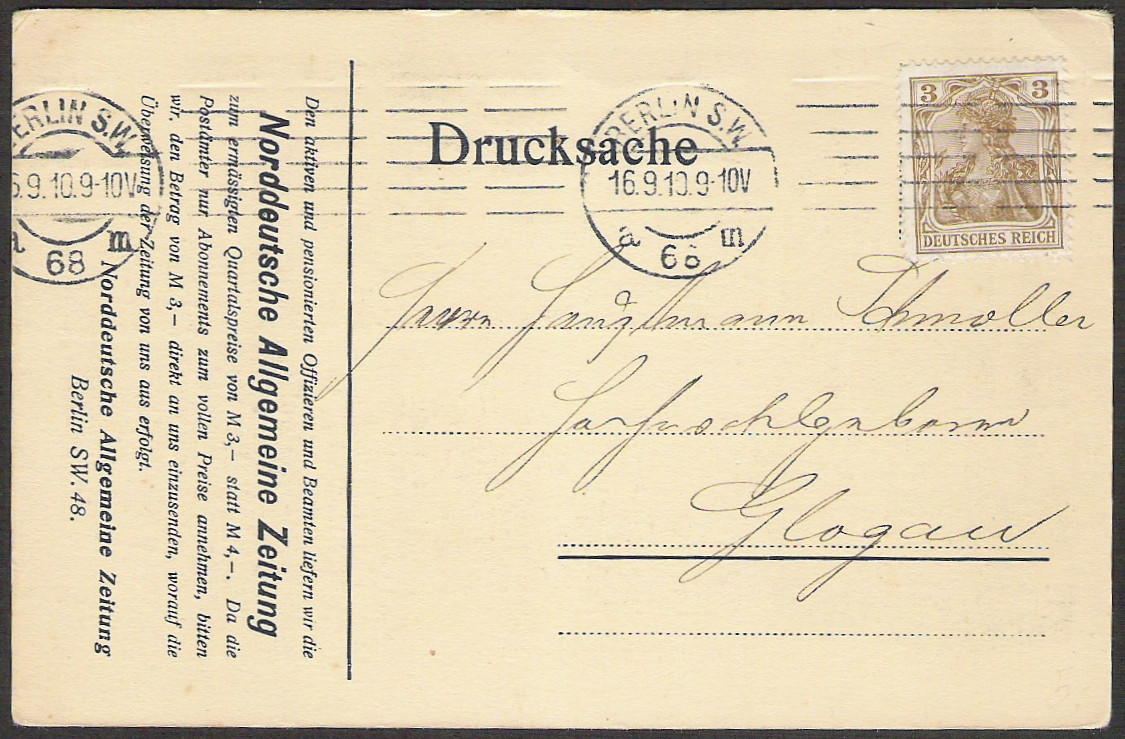 Den aktiven und pensionierten Offizieren und Beamten liefern wir die
Norddeutsche Allgemeine Zeitung
zum ermässigten Quartalspreise von M 3,– statt M 4,–. Da die
Postämter nur Abonnements zum vollen Preise annehmen, bitten
wir, den Betrag von M 3,– direkt an uns einzusenden, worauf die
Überweisung der Zeitung von uns aus erfolgt.
Norddeutsche Allgemeine Zeitung
Berlin SW. 48.
BERLIN S.W.
6.9.10.9-10V
a 68 m
Drucksache
BERLIN S.W.
16.9.10.9-10V
a 68 m
3 3
DEUTSCHES REICH
Herrn Hauptmann Schmoller
Glogau